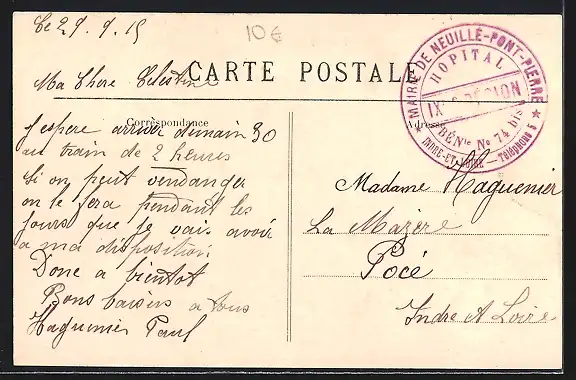 Le 29. 9. 15
10€
Ma Chere Celestine
CARTE POSTALE
Correspondance
Adresse
MAIRIE DE NEUILLÉ-PONT-PIERRE
HOPITAL
IXe RÉGION
BÉNle No 74 bis
INDRE-ET-LOIRE
J'espere arriver demain 30
au train de 2 heures
Si on peut vendanger
on le fera pendant les
jours que je vais avoir
a ma disposition
Donc a bientot
Bons baisers a tous
Haguenier Paul
Madame Haguenier
La Mazère
Pocé
Indre et Loire